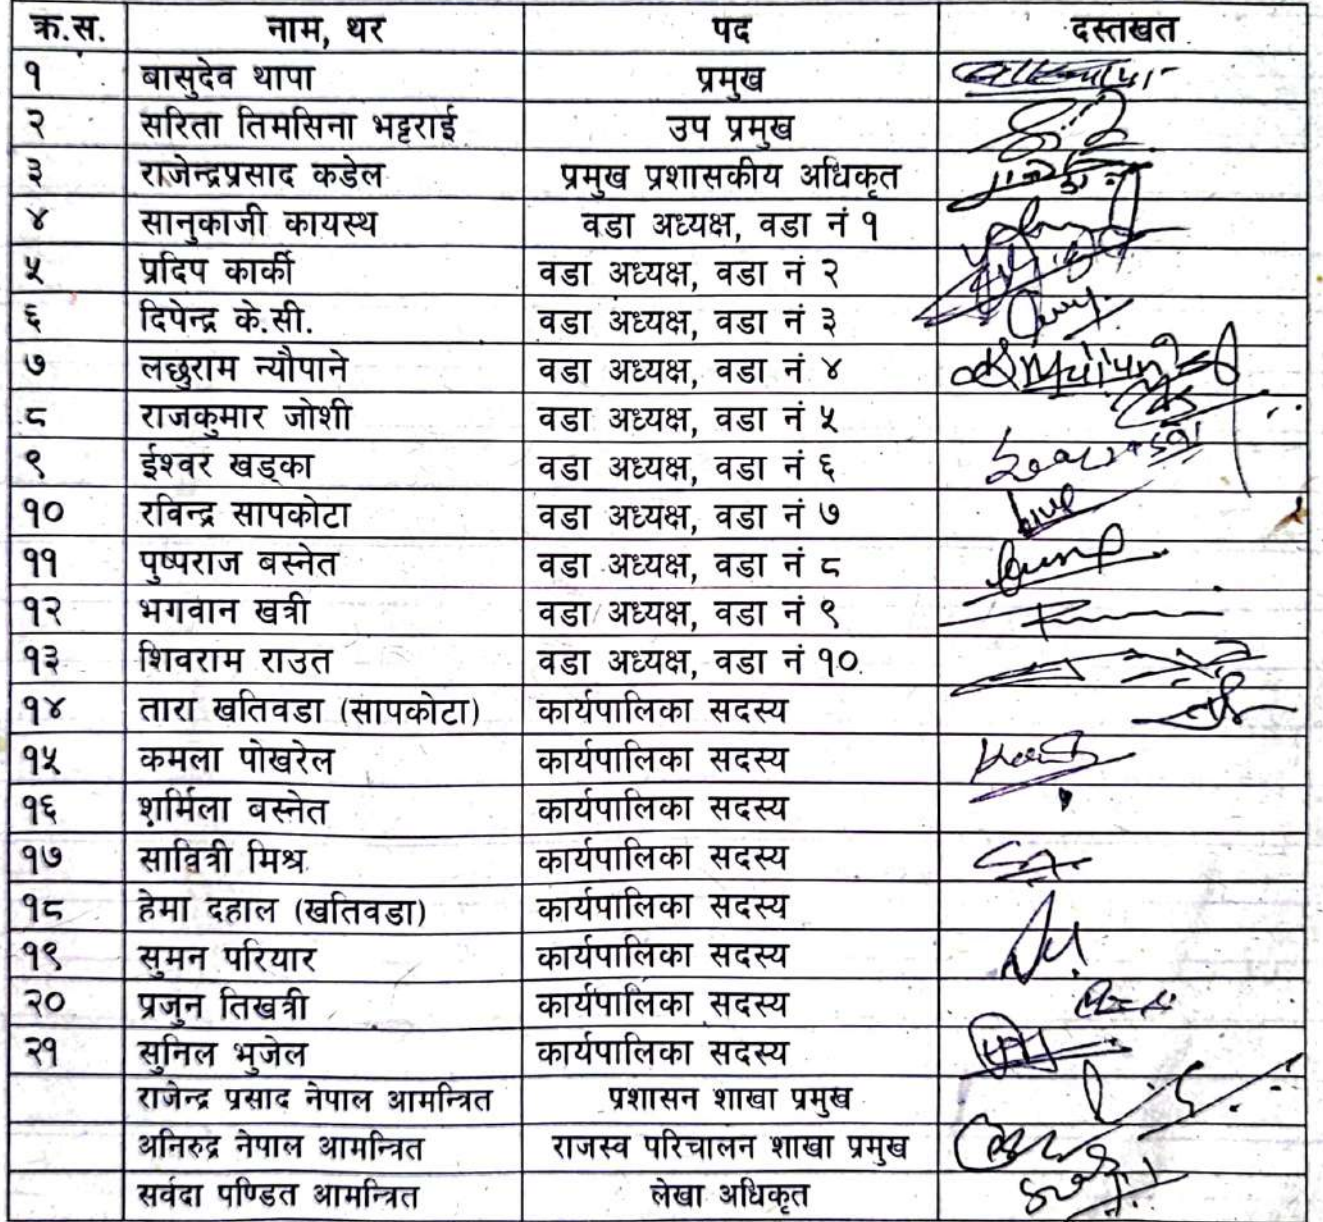 क्र.स. नाम, थर पद दस्तखत
१ बासुदेव थापा प्रमुख
२ सरिता तिमसिना भट्टराई उप प्रमुख
३ राजेन्द्रप्रसाद कडेल प्रमुख प्रशासकीय अधिकृत
४ सानुकाजी कायस्थ वडा अध्यक्ष, वडा नं १
५ प्रदिप कार्की वडा अध्यक्ष, वडा नं २
६ दिपेन्द्र के.सी. वडा अध्यक्ष, वडा नं ३
७ लछुराम न्यौपाने वडा अध्यक्ष, वडा नं ४
८ राजकुमार जोशी वडा अध्यक्ष, वडा नं ५
९ ईश्वर खड्का वडा अध्यक्ष, वडा नं ६
१० रविन्द्र सापकोटा वडा अध्यक्ष, वडा नं ७
११ पुष्पराज बस्नेत वडा अध्यक्ष, वडा नं ८
१२ भगवान खत्री वडा अध्यक्ष, वडा नं ९
१३ शिवराम राउत वडा अध्यक्ष, वडा नं १०
१४ तारा खतिवडा (सापकोटा) कार्यपालिका सदस्य
१५ कमला पोखरेल कार्यपालिका सदस्य
१६ शर्मिला वस्नेत कार्यपालिका सदस्य
१७ सावित्री मिश्र कार्यपालिका सदस्य
१८ हेमा दहाल (खतिवडा) कार्यपालिका सदस्य
१९ सुमन परियार कार्यपालिका सदस्य
२० प्रजुन तिखत्री कार्यपालिका सदस्य
२१ सुनिल भुजेल कार्यपालिका सदस्य
राजेन्द्र प्रसाद नेपाल आमन्त्रित प्रशासन शाखा प्रमुख
अनिरुद्र नेपाल आमन्त्रित राजस्व परिचालन शाखा प्रमुख
सर्वदा पण्डित आमन्त्रित लेखा अधिकृत